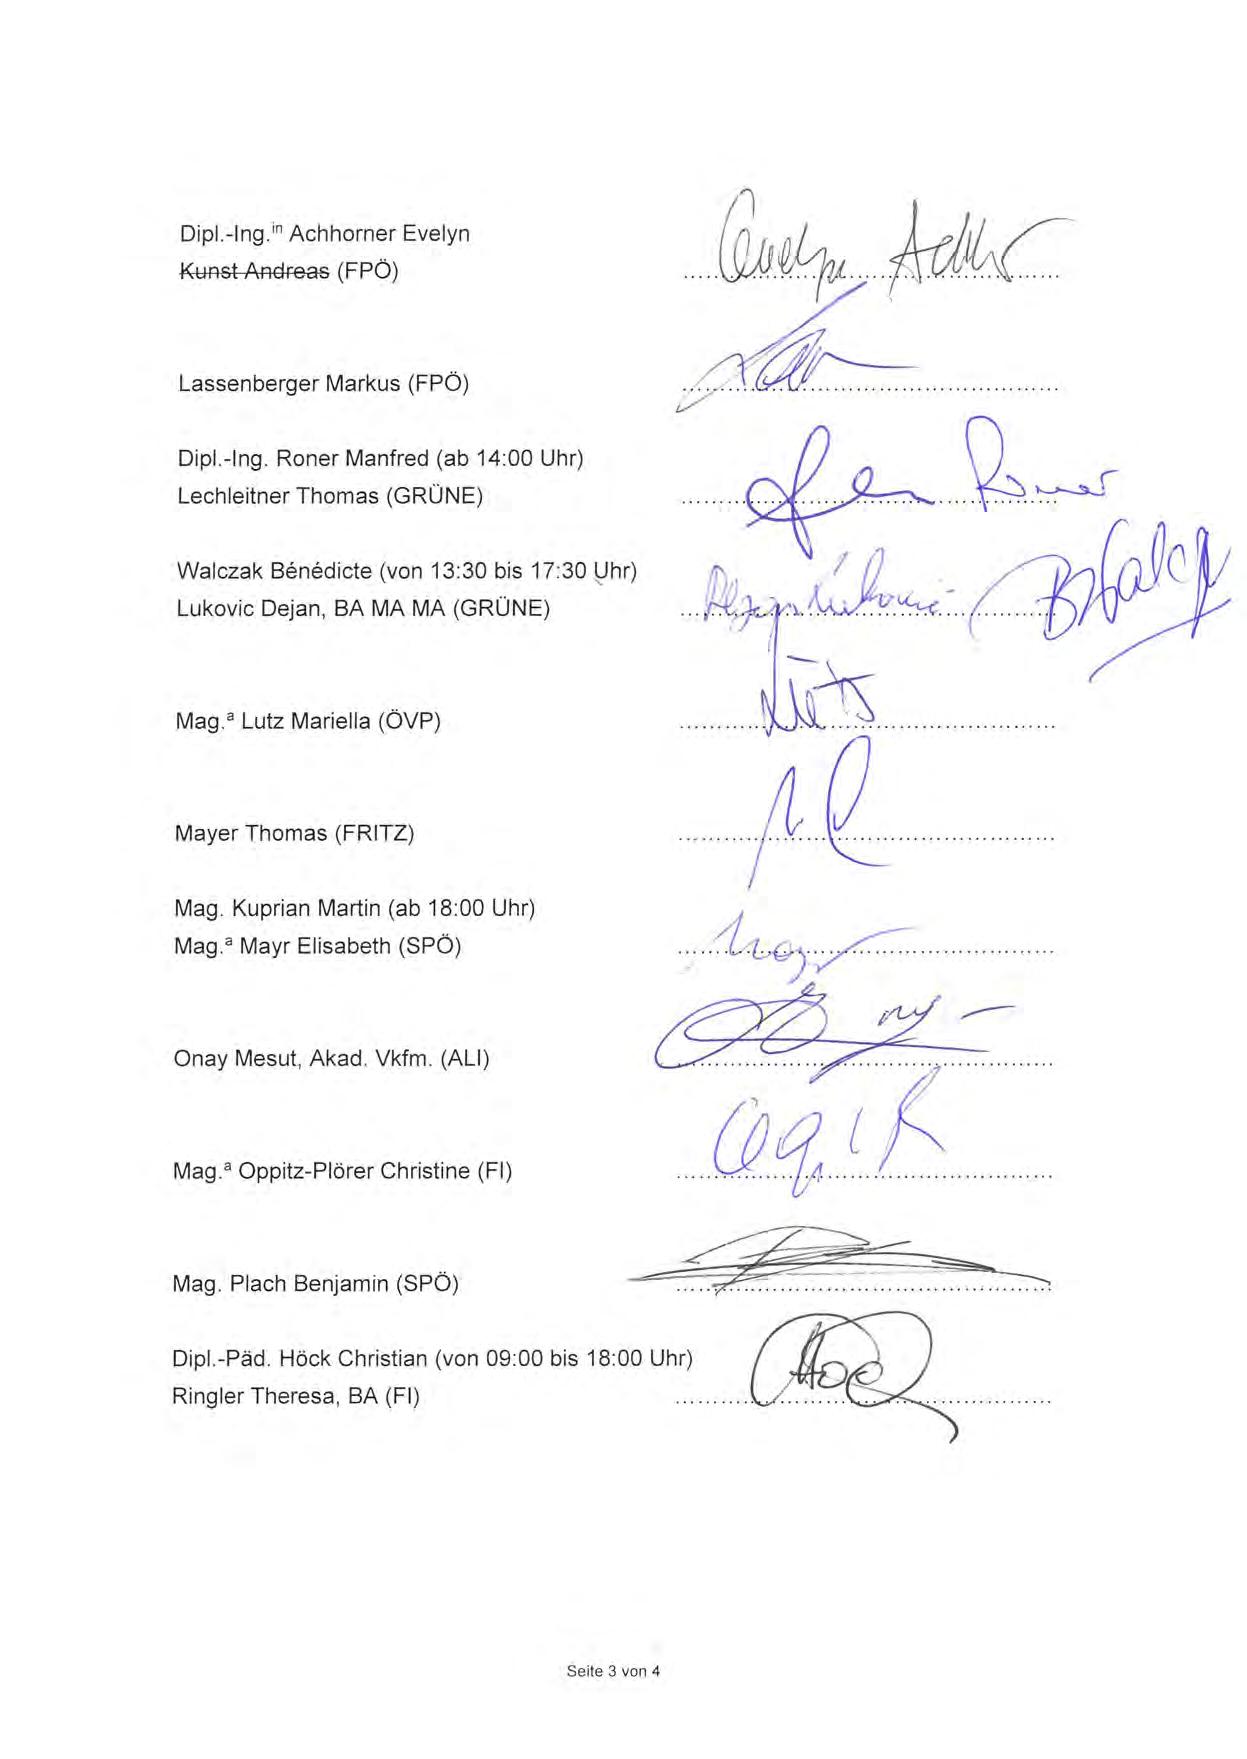 Dipl.-Ing.in Achhorner Evelyn
Kunst Andreas (FPÖ)
Evelyn Achhr
Lassenberger Markus (FPÖ)
Dipl.-Ing. Roner Manfred (ab 14:00 Uhr)
Lechleitner Thomas (GRÜNE)
Roner
Walczak Bénédicte (von 13:30 bis 17:30 Uhr)
Lukovic Dejan, BA MA MA (GRÜNE)
Dejan Lukovic BWalcz
Mag.a Lutz Mariella (ÖVP)
Lutz
Mayer Thomas (FRITZ)
Mag. Kuprian Martin (ab 18:00 Uhr)
Mag.a Mayr Elisabeth (SPÖ)
Mayr
Onay Mesut, Akad. Vkfm. (ALI)
Mag.a Oppitz-Plörer Christine (FI)
Mag. Plach Benjamin (SPÖ)
Dipl.-Päd. Höck Christian (von 09:00 bis 18:00 Uhr)
Ringler Theresa, BA (FI)
Seite 3 von 4